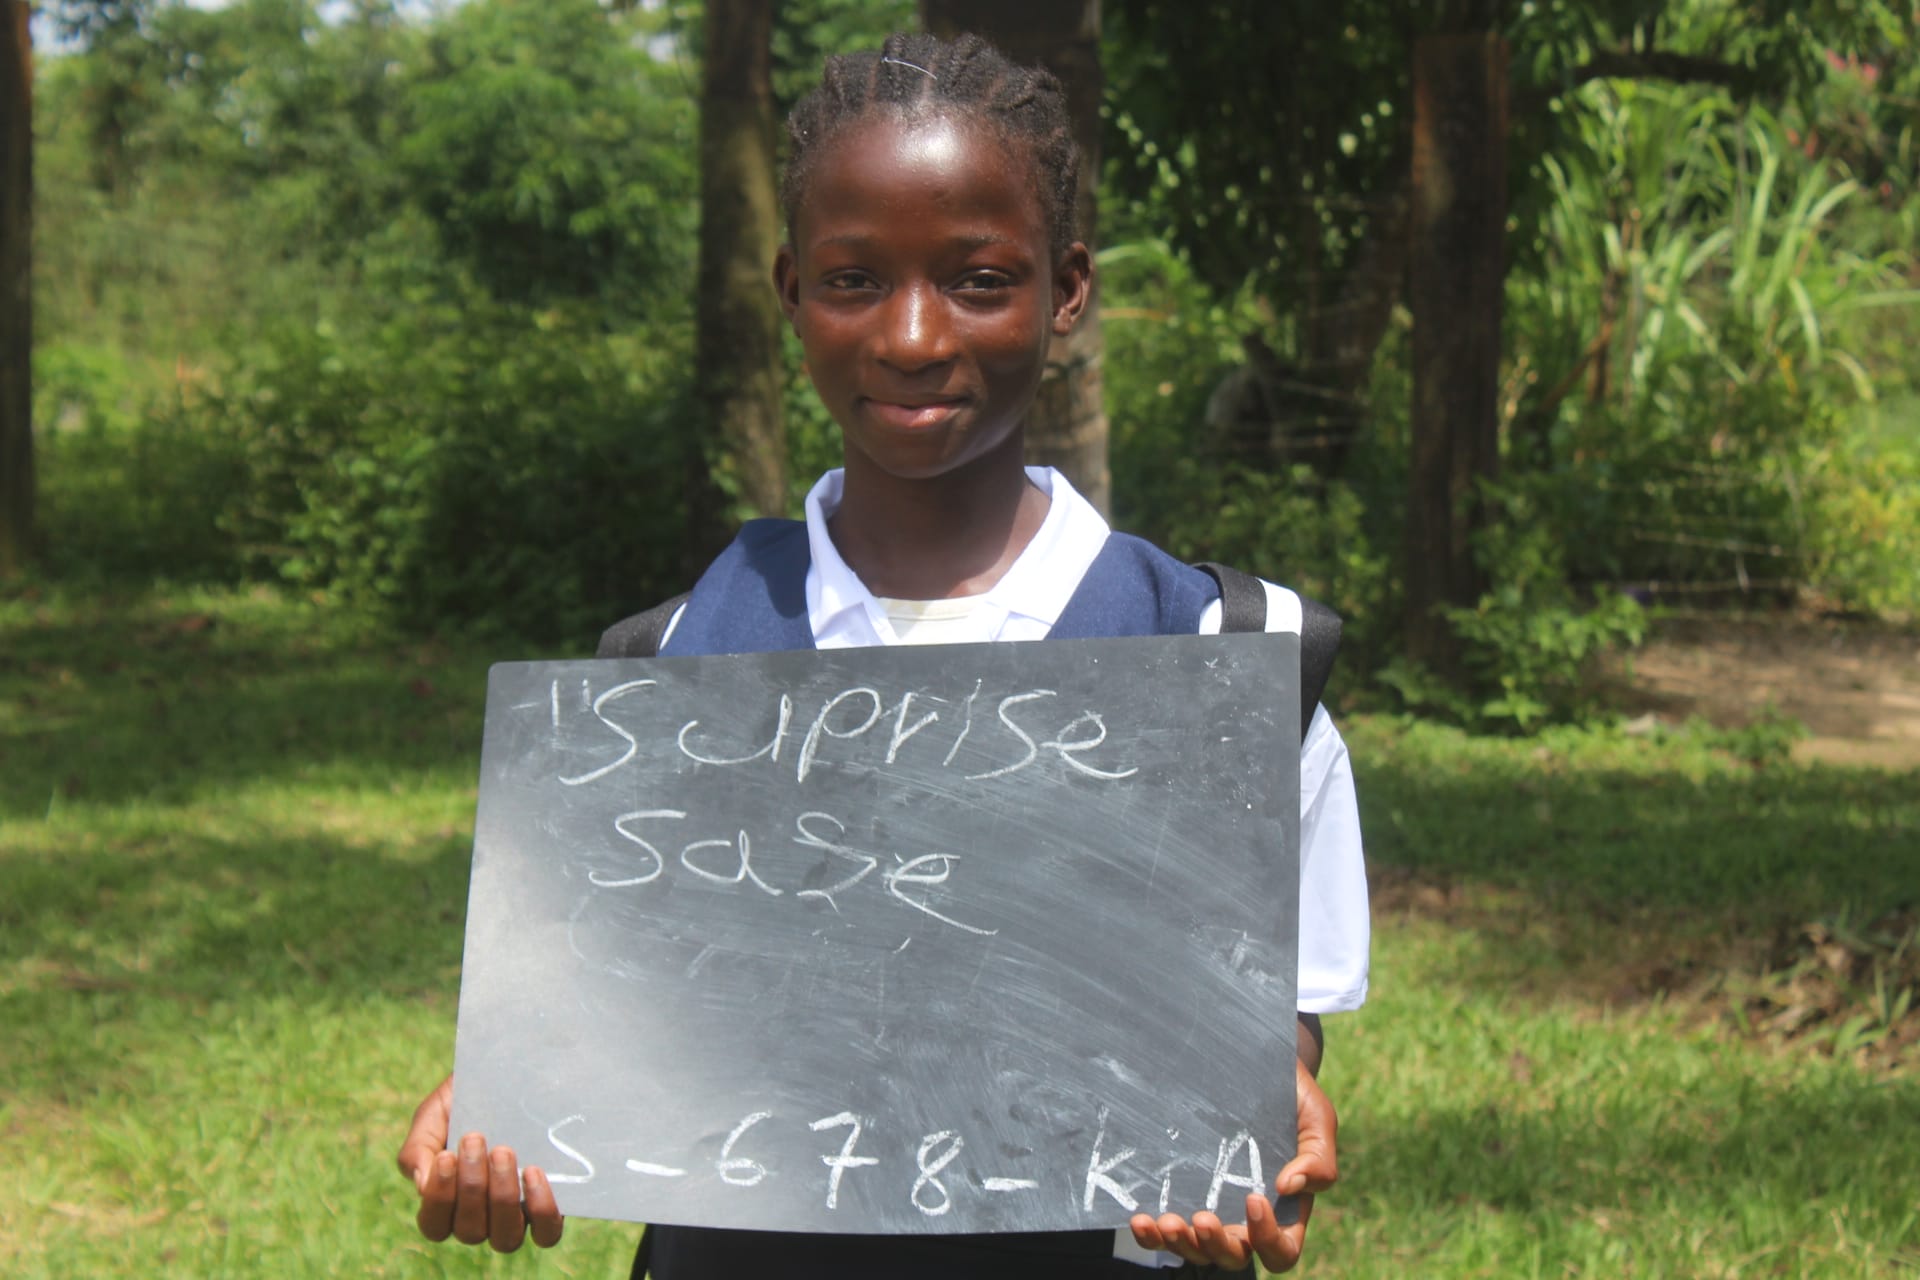 Suprise
Sase
S-678-KiA